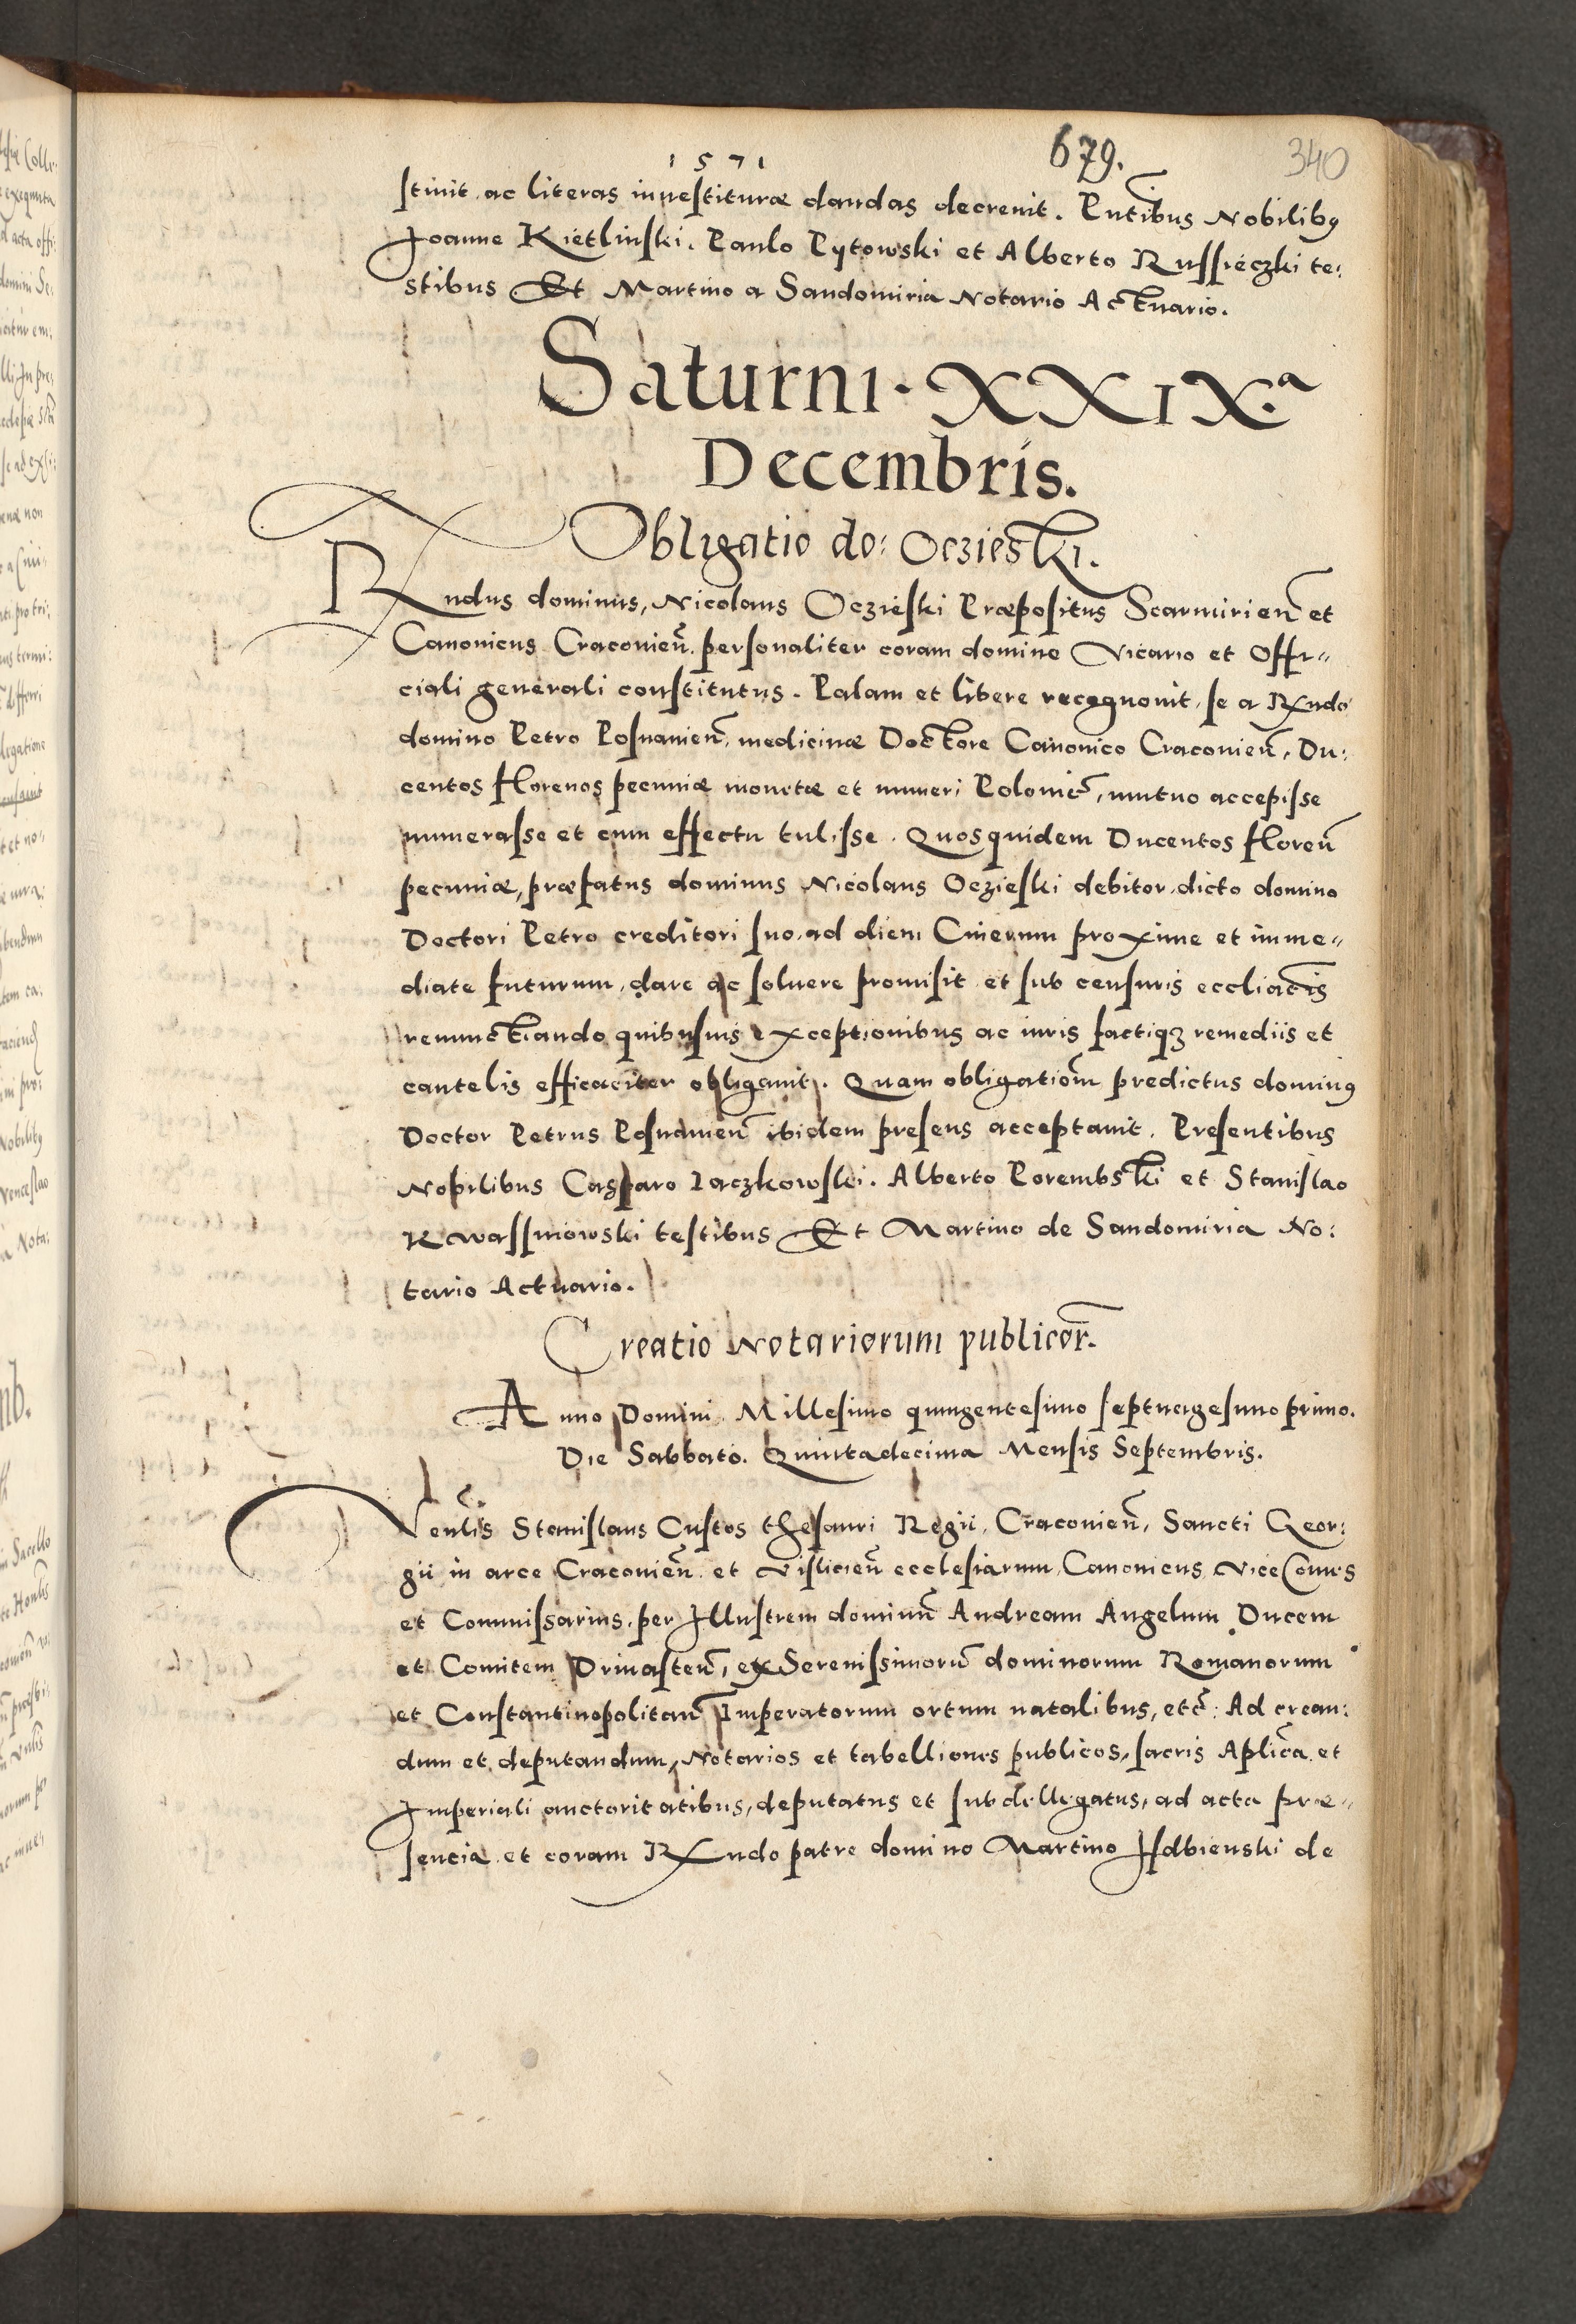 1571
679.
340
stituit, ac literas inuestituræ dandas decreuit. Pntibus Nobilibus
Joanne Kietlinski. Paulo Pytowski et Alberto Russieczki te:
stibus Et Martino a Sandomiria Notario Actuario.
Saturni. XXIX.a
Decembris.
Obligatio do: Oczieski.
Rndus dominus, Nicolaus Oczieski Præpositus Scarmirień et
Canonicus Cracovień. personaliter coram domine Vicario et Offi"
ciali generali constitutus. Palam et libere recognouit, se a Rndo
domino Petro Posnanień, medicinæ Doctore Canonico Craconień, Du:
centos florenos pecuniæ monetæ et numeri Polonic̃, mutuo accepisse
numerasse et cum effectu tulisse. Quosquidem Ducentos floreñ
pecuniæ, præfatus dominus Nicolaus Oczieski debitor, dicto domino
Doctori Petro creditori suo, ad diem Cinerum proxime et imme"
diate futurum, dare ac soluere promisit et sub censuris eccliacis
renunctiando quibusuis exceptionibus ac iuris factiqz remediis et
cautelis efficaciter obligauit. Quam obligationm̃ predictus dominus
Doctor Petrus Posnanień ibidem presens acceptauit. Presentibus
Nobilibus Casparo Iaczkowski. Alberto Porembski et Stanislao
Kwassniowski testibus Et Martino de Sandomiria No:
tario Actuario.
Creatio Notariorum publicor̃.
Anno Domini Millesimo quingentesimo septuagesimo primo.
Die Sabbato. Quintadecima Mensis Septembris.
Venlis Stanislaus Custos thesauri Regii, Craconień, Sancti Geor:
gii in arce Craconień et Vislicień ecclesiarum Canonicus, ViceComes
et Commissarius, per Illustrem dominũ Andream Angelum Ducem
et Comitem Driuasteñ, ex Serenissimorũ dominorum Romanorum
et Constantinopolitañ Imperatorum ortum natalibus, etc̃: Ad crean:
dum et deputandum, Notarios et tabelliones publicos, sacris Aplica et
Imperiali auctoritatibus, deputatus et subdellegatus, ad acta præ"
sencia et coram Rndo patre domino Martino Isdbienski de